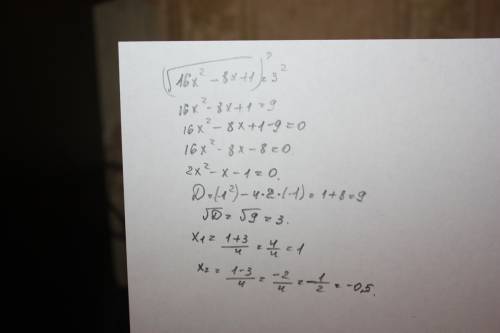 (√16x² - 8x+1)² = 3²
16x² - 8x+1 = 9
16x² - 8x+1-9 = 0
16x² - 8x - 8 = 0
2x² - x - 1 = 0.
D = (1²) - 4·2·(-1) = 1+8 = 9
√D = √9 = 3.
x₁ = (1+3)/4 = 4/4 = 1
x₂ = (1-3)/4 = -2/4 = -1/2 = -0,5.